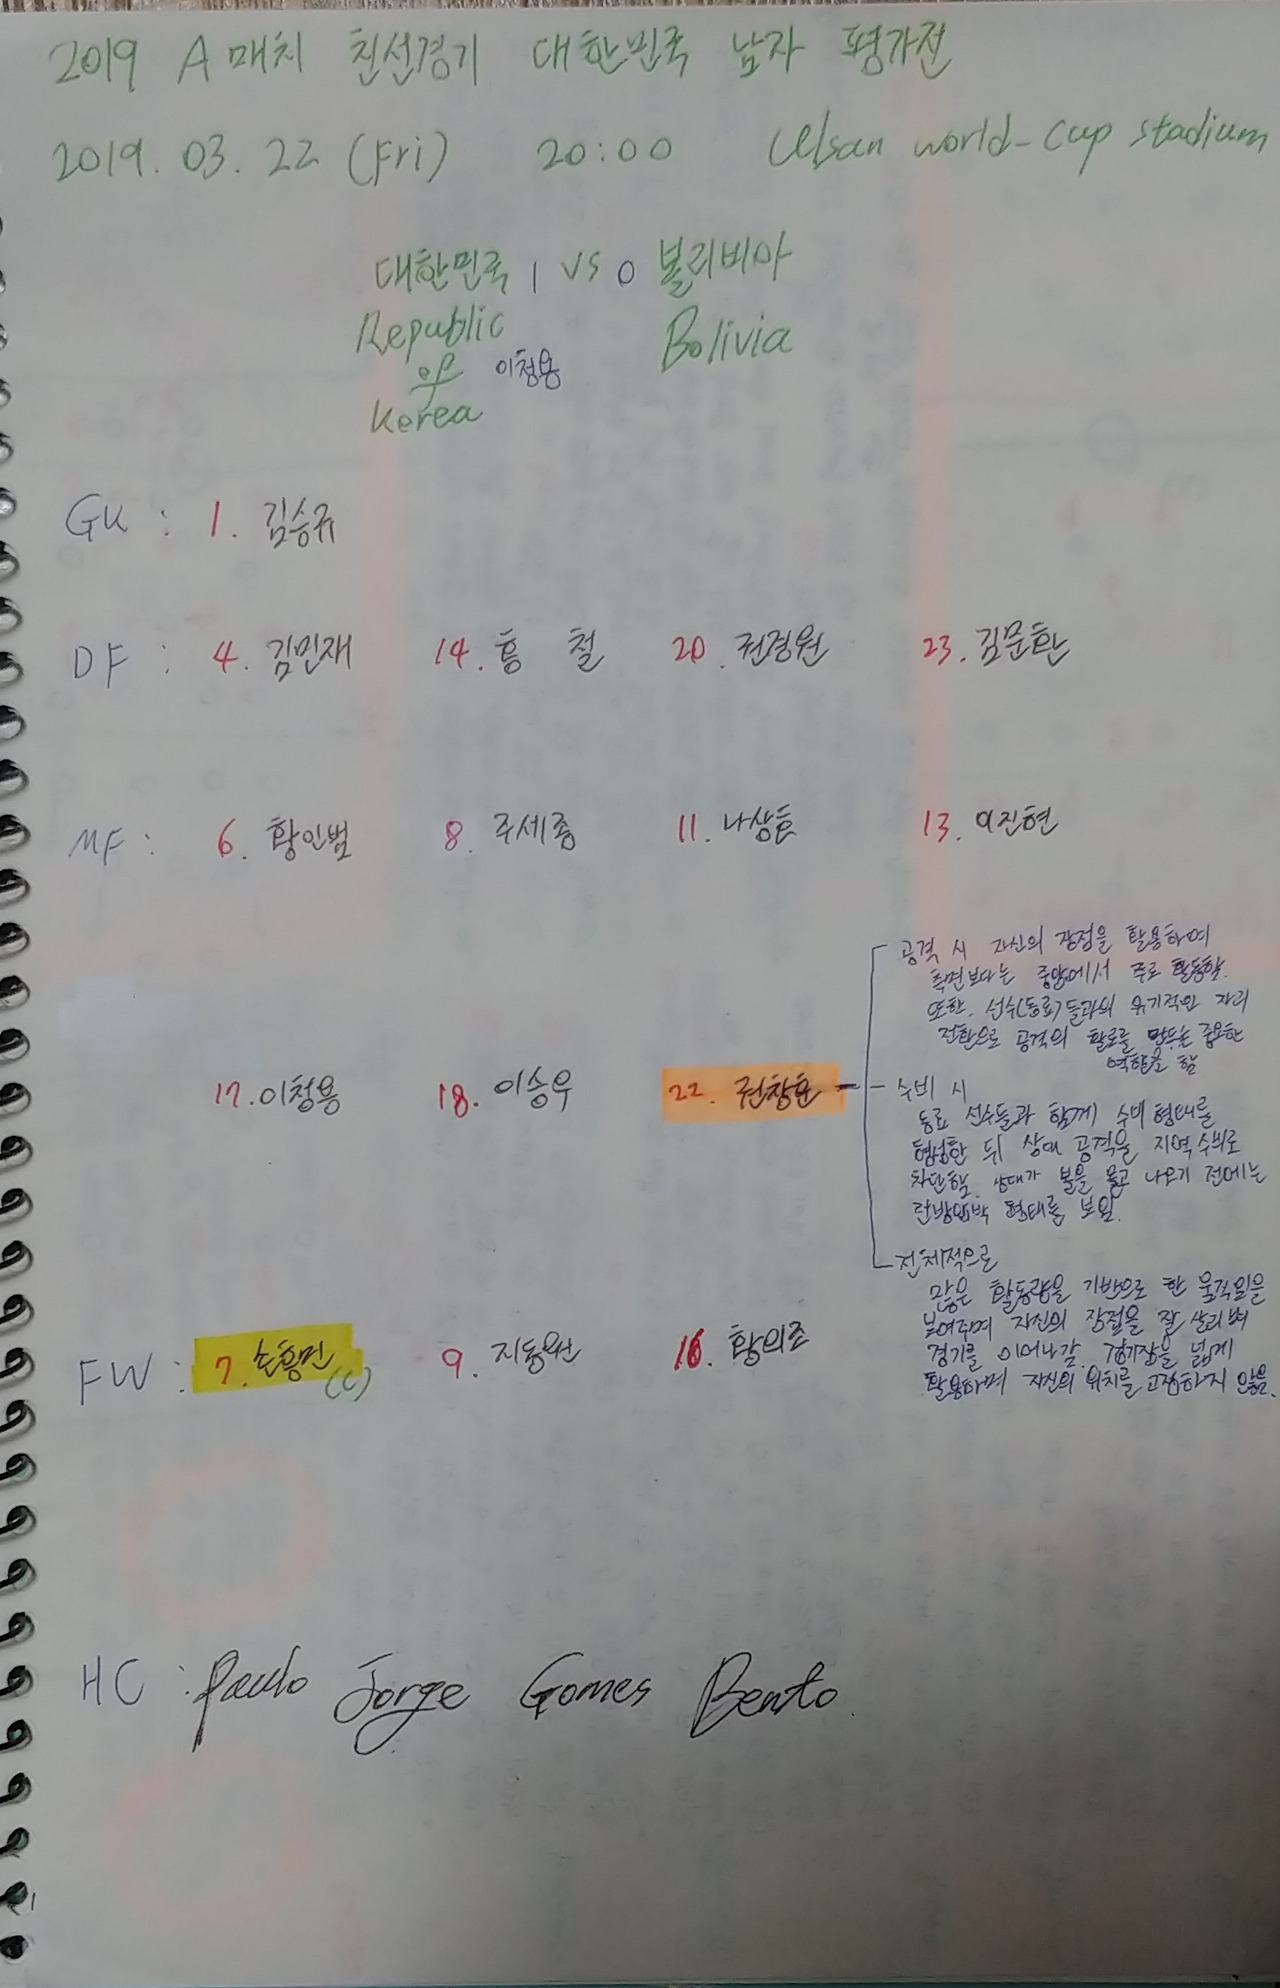 2019 A매치 친선경기 대한민국 남자 평가전
2019. 03. 22 (Fri) 20:00 Ulsan world-cup stadium
대한민국 1 vs 0 볼리비아
Republic of Korea 이청용 Bolivia
GK : 1. 김승규
DF : 4. 김민재 14. 홍 철 20. 권경원 23. 김문환
MF : 6. 황인범 8. 주세종 11. 나상호 13. 이진현
17. 이청용 18. 이승우 22. 권창훈
공격 시 자신의 장점을 활용하여
측면보다는 중앙에서 주로 활동함.
또한, 선수(동료)들과의 유기적인 자리
전환으로 공격의 활로를 만드는 중요한
역할을 함
수비 시
동료 선수들과 함께 수비 형태를
형성한 뒤 상대 공격을 지역수비로
차단함. 상대가 볼을 몰고 나오기 전에는
전방압박 형태를 보임.
전체적으로
많은 활동량을 기반으로 한 움직임을
보여주며 자신의 장점을 잘 살리며
경기를 이어나감. 경기장을 넓게
활용하며 자신의 위치를 고정하지 않음.
FW : 7. 손흥민 (C) 9. 지동원 16. 황의조
HC : Paulo Jorge Gomes Bento.